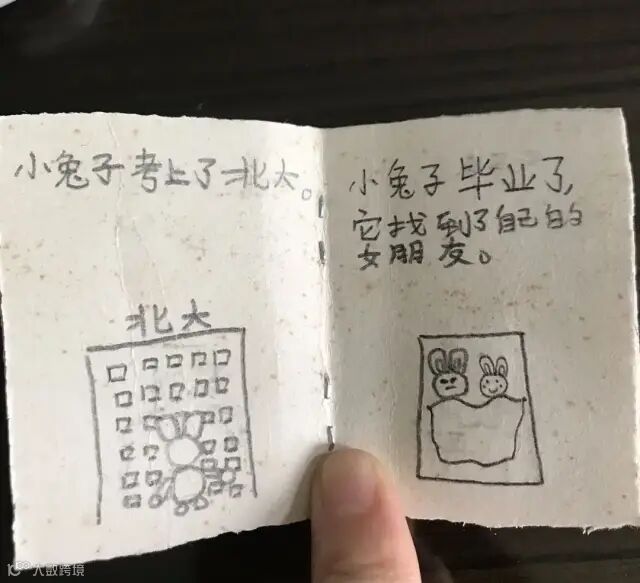 小兔子考上了北大。
北大
小兔子毕业了,
它找到了自己的
女朋友。
大数跨境